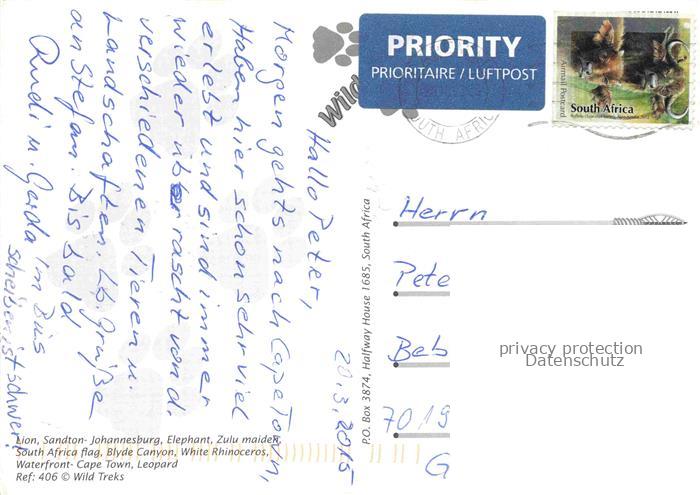 PRIORITY
PRIORITAIRE / LUFTPOST
Airmail Postcard
South Africa
OUTH AFRIC
Wild
20.3.2015
Hallo Peter,
Morgen gehts nach CapeTown,
Haben hier schon sehr viel
erlebt und sind immer
wieder überrascht von d.
verschiedenen Tieren u.
Landschaften. Lb. Grüße
an Stefan. Bis bald
Rudi u. Gerda
Im Bus
schreiben ist schwer!
P.O. Box 3874, Halfway House 1685, South Africa
Herrn
Pete
Beb
7019
G
privacy protection
Datenschutz
Lion, Sandton- Johannesburg, Elephant, Zulu maiden,
South Africa flag, Blyde Canyon, White Rhinoceros,
Waterfront- Cape Town, Leopard
Ref: 406 © Wild Treks